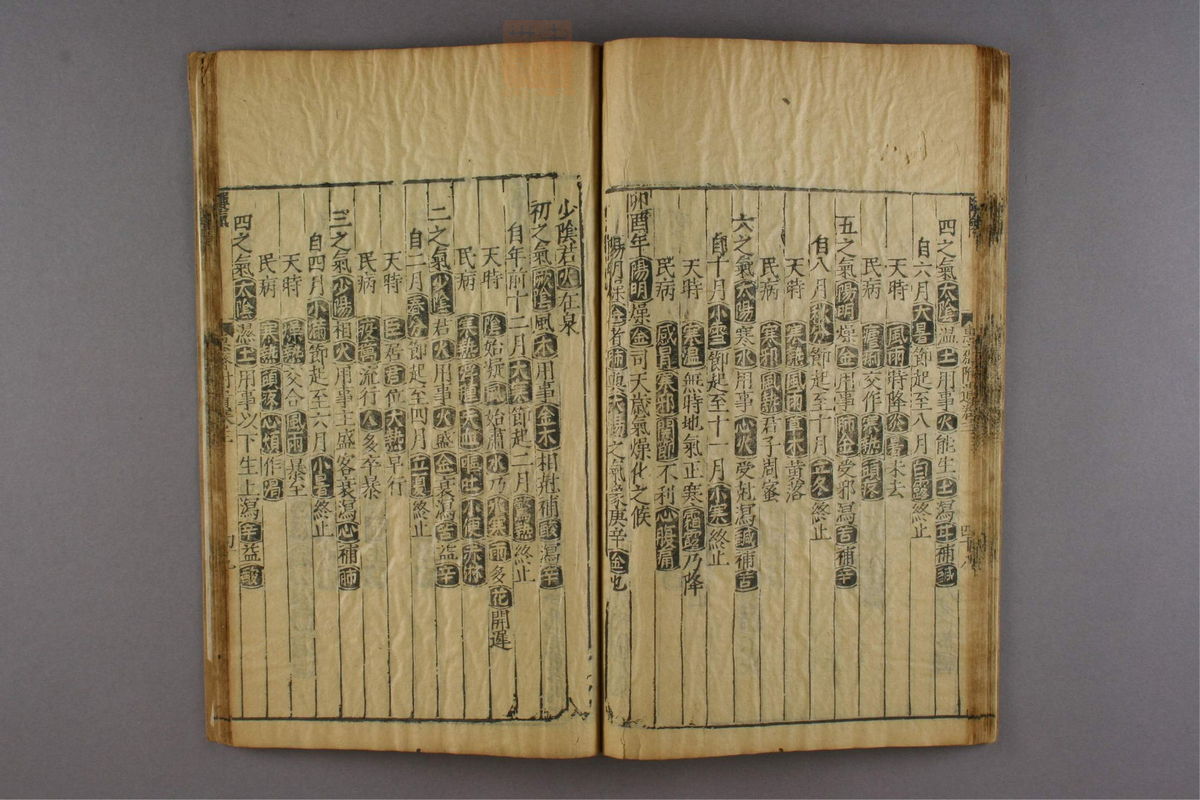 四之氣太陰濕土用事火能生土瀉耳補鹹
自六月大暑節起至八月白露終止
天時風雨時降炎暑未去
民病瘧痢交作寒熱頭疼
五之氣陽明燥金用事肺金受邪瀉苦補辛
自八月秋分節起至十月立冬終止
天時寒熱風雨草木黃落
民病寒邪風熱君子周蜜
六之氣太陽寒水用事心火受尅瀉鹹補苦
自十月小雪節起至十二月小寒終止
天時寒溫無時地氣正寒霜露乃降
民病感冒寒邪關節不利心腹痛
卯酉年陽明燥金司天歲氣燥化之候
陽明燥金者肺與大腸之氣象庚辛金也
少陰君火在泉
初之氣厥陰風木用事金木相尅補酸瀉辛
自年前十二月大寒節起二月驚蟄終止
天時陰始凝風始肅水乃冰寒雨多花開遲
民病寒熱浮腫失血嘔吐小便赤淋
二之氣少陰君火用事火盛金衰瀉苦益辛
自二月春分節起至四月立夏終止
天時臣居君位大熱早行
民病疫癘流行人多卒暴
三之氣少陽相火用事主盛客衰瀉心補肺
自四月小滿節起至六月小暑終止
天時燥熱交合風雨暴至
民病寒熱頭疼心煩作渴
四之氣太陰濕土用事以下生上瀉辛益鹹